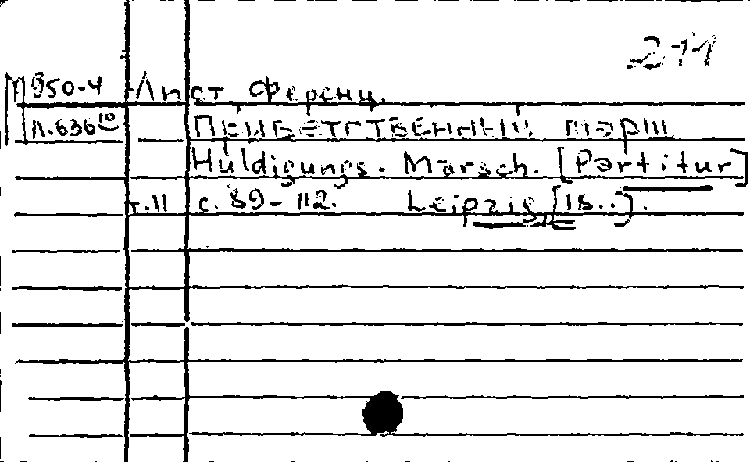 211
950-4 Лист, Ференц.
Л.636 Приветственный марш
Huldigungs. Marsch. [Partitur]
т.11 с. 89-112. Leipzig, [18..].